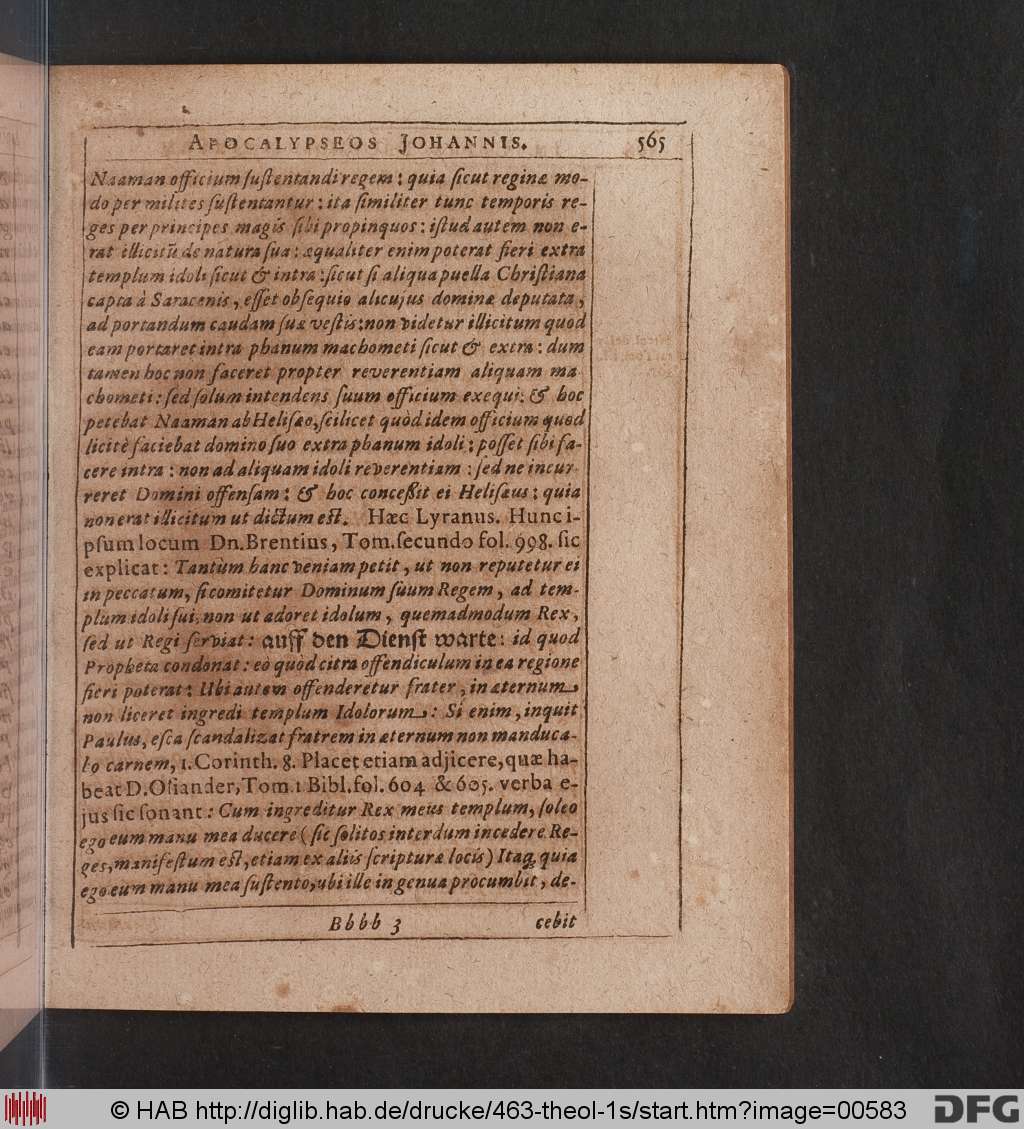 APOCALYPSEOS JOHANNIS. 565
Naaman officium ſuſtentandi regem: quia ſicut reginæ mo-
do per milites ſuſtentantur: ita ſimiliter tunc temporis re-
ges per principes magis ſibi propinquos: iſtud autem non e-
rat illicitũ de natura ſua: æqualiter enim poterat fieri extra
templum idoli ſicut & intra: ſicut ſi aliqua puella Chriſtiana
capta à Saracenis, eſſet obſequio alicujus dominæ deputata,
ad portandum caudam ſuæ veſtis: non videtur illicitum quod
eam portaret intra phanum machometi ſicut & extra: dum
tamen hoc non faceret propter reverentiam aliquam ma
chometi: ſed ſolum intendens ſuum officium exequi: & hoc
petebat Naaman ab Heliſæo, ſcilicet quòd idem officium quod
licitè faciebat domino ſuo extra phanum idoli; poſſet ſibi fa-
cere intra: non ad aliquam idoli reverentiam: ſed ne incur-
reret Domini offenſam: & hoc conceßit ei Heliſæus: quia
non erat illicitum ut dictum eſt. Hæc Lyranus. Hunc i-
pſum locum Dn. Brentius, Tom. ſecundo fol. 998. ſic
explicat: Tantùm hanc veniam petit, ut non reputetur ei
in peccatum, ſi comitetur Dominum ſuum Regem, ad tem-
plum idoli ſui, non ut adoret idolum, quemadmodum Rex,
ſed ut Regi ſerviat: auff den Dienſt warte: id quod
Propheta condonat: eò quòd citra offendiculum in ea regione
fieri poterat: Ubi autem offenderetur frater, in æternum
non liceret ingredi templum Idolorum: Si enim, inquit
Paulus, eſca ſcandalizat fratrem in æternum non manduca-
bo carnem, 1. Corinth. 8. Placet etiam adjicere, quæ ha-
beat D. Oſiander, Tom. 1 Bibl. fol. 604 & 605. verba e-
jus ſic ſonant: Cum ingreditur Rex meus templum, ſoleo
ego eum manu mea ducere (ſic ſolitos interdum incedere Re-
ges, manifeſtum eſt, etiam ex aliis ſcripturæ locis) Itaq; quia
ego eum manu mea ſuſtento, ubi ille in genua procumbit, de-
Bbbb 3 cebit
© HAB http://diglib.hab.de/drucke/463-theol-1s/start.htm?image=00583 DFG